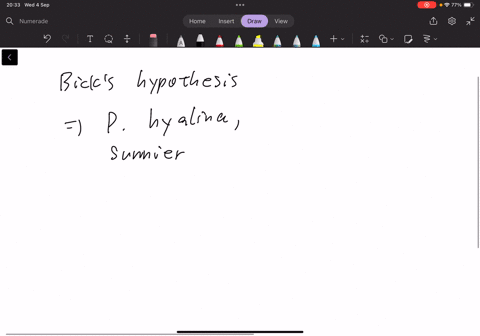 20:33 Wed 4 Sep
77%
Numerade
Home Insert Draw View
Bick's hypothesis
=) P. hyalina,
sunnier